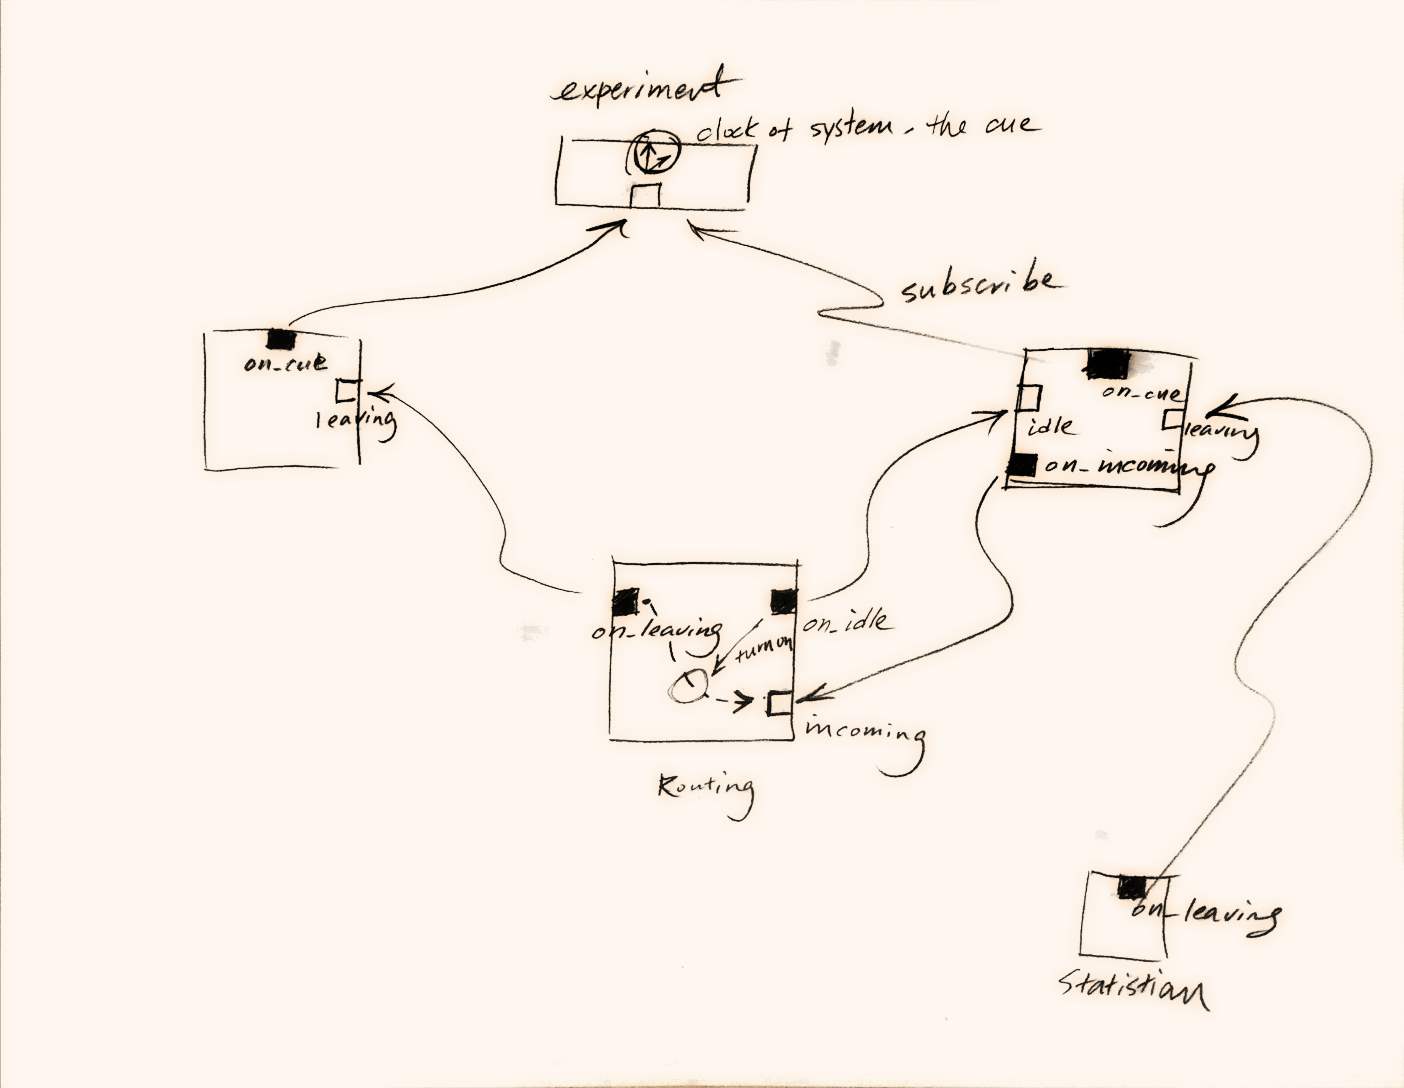 experiment
clock of system, the cue
subscribe
on_cue
leaving
on_cue
idle
leaving
on_incoming
on_leaving
on_idle
turn on
incoming
Routing
on_leaving
Statistian